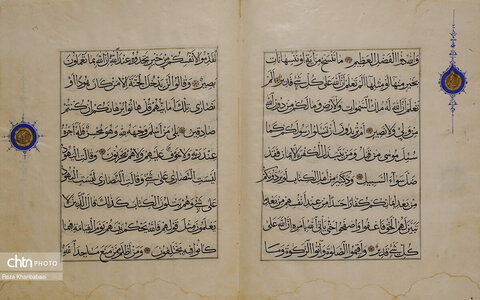 والله ذو الفضل العظيم ما ننسخ من آية او ننسها نأت
بخير منها او مثلها الم تعلم ان الله على كل شيء قدير الم
تعلم ان الله له ملك السموات والارض وما لكم من دون الله
من ولي ولا نصير ام تريدون ان تسئلوا رسولكم كما
سئل موسى من قبل ومن يتبدل الكفر بالايمان فقد
ضل سواء السبيل ود كثير من اهل الكتاب لو يردونكم
من بعد ايمانكم كفارا حسدا من عند انفسهم من بعد ما
تبين لهم الحق فاعفوا واصفحوا حتى يأتي الله بامره ان الله على
كل شيء قدير واقيموا الصلوة وآتوا الزكوة وما
تقدموا لانفسكم من خير تجدوه عند الله ان الله بما تعملون
بصير وقالوا لن يدخل الجنة الا من كان هودا او
نصارى تلك امانيهم قل هاتوا برهانكم ان كنتم
صادقين بلى من اسلم وجهه لله وهو محسن فله اجره
عند ربه ولا خوف عليهم ولا هم يحزنون وقالت اليهود
ليست النصارى على شيء وقالت النصارى ليست اليهود
على شيء وهم يتلون الكتاب كذلك قال الذين لا
يعلمون مثل قولهم فالله يحكم بينهم يوم القيامة فيما
كانوا فيه يختلفون ومن اظلم ممن منع مساجد الله
chtn PHOTO
Reza Khanbabaei